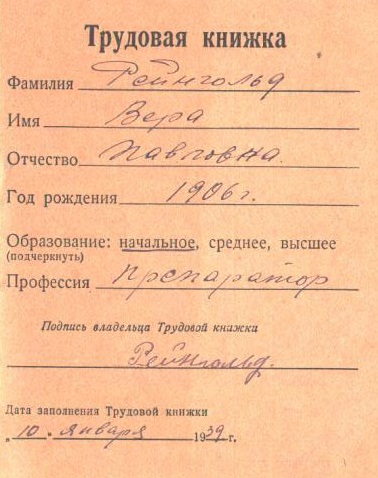 Трудовая книжка
Фамилия Рейнгольд
Имя Вера
Отчество Павловна.
Год рождения 1906 г.
Образование: начальное, среднее, высшее
(подчеркнуть)
Профессия препаратор
Подпись владельца Трудовой книжки
Рейнгольд.
Дата заполнения Трудовой книжки
„10" января 1939 г.